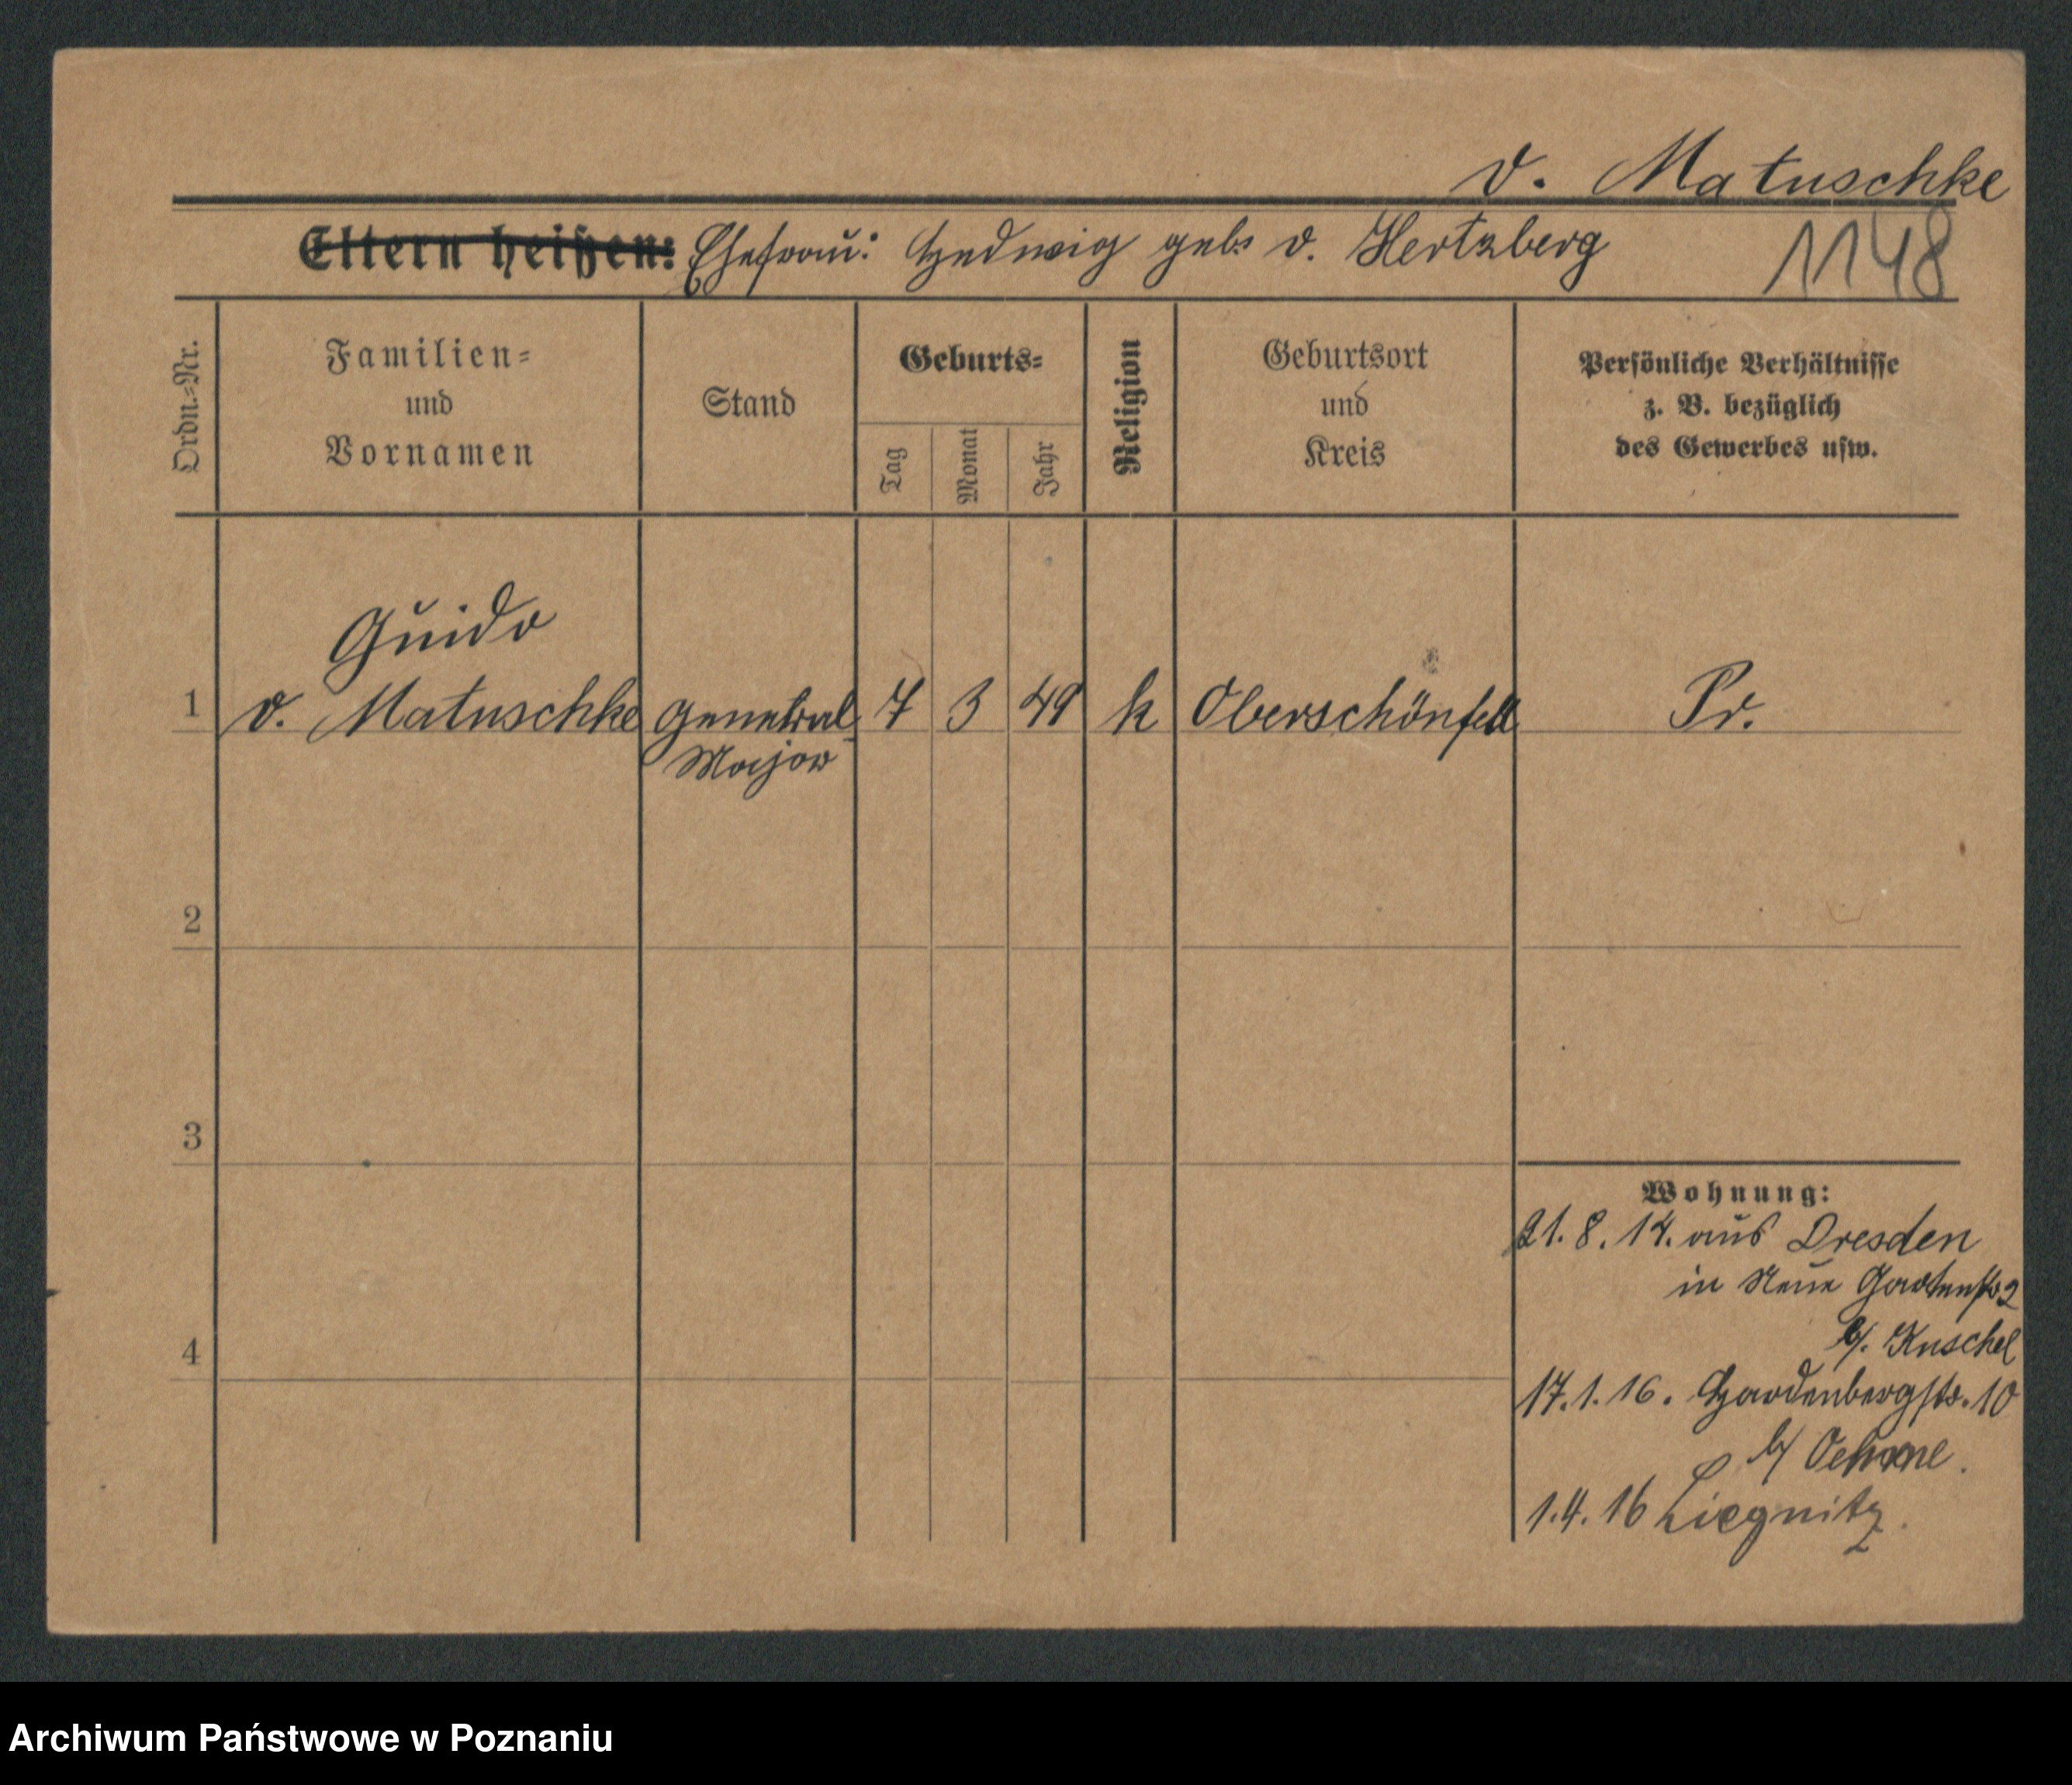 v. Matuschke
Eltern heißen: Ehefrau: Hedwig geb. v. Hertzberg
1148
Ordn.-Nr.
Familien-
und
Vornamen
Stand
Geburts-
Tag
Monat
Jahr
Religion
Geburtsort
und
Kreis
Persönliche Verhältnisse
z. B. bezüglich
des Gewerbes usw.
Guido
1 v. Matuschke General 7 3 49 k Oberschönfeld Pr.
Major
2
3
4
Wohnung:
21. 8. 14. aus Dresden
in Neue Gartenstr 2
b/. Kuschel
17. 1. 16. Hardenbergstr. 10
b/
1. 4. 16 Liegnitz.
Archiwum Państwowe w Poznaniu